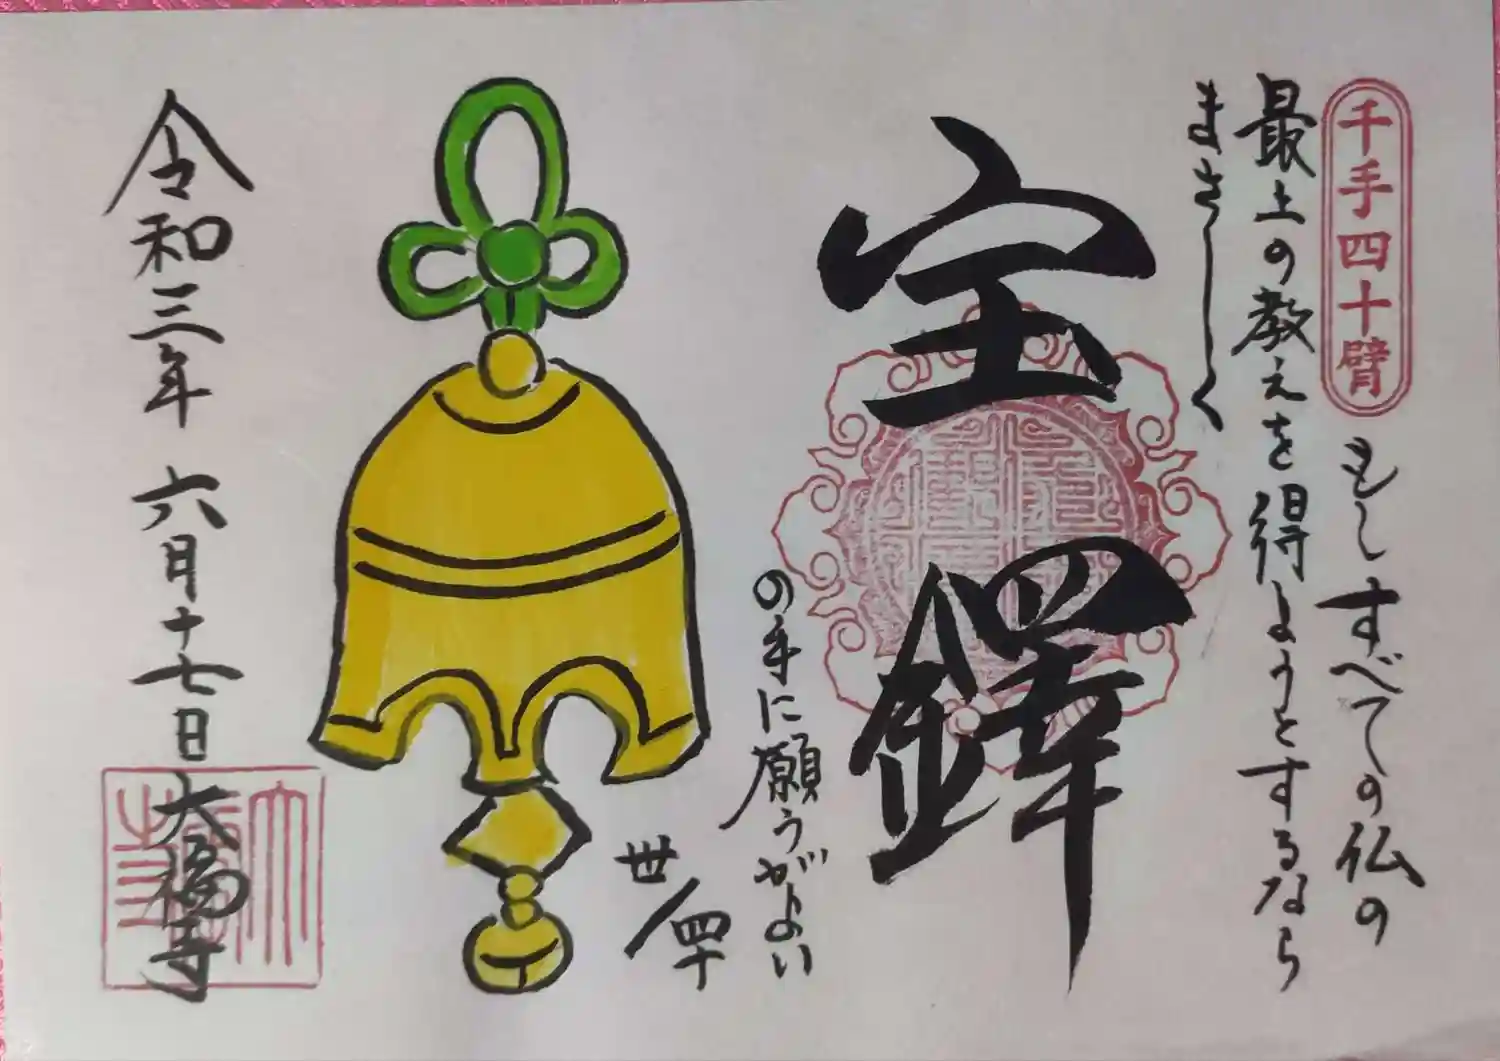 千手四十臂
もしすべての仏の
最上の教えを得ようとするなら
まさしく
宝鐸
の手に願うがよい
世/四十
令和三年 六月十七日 大福寺